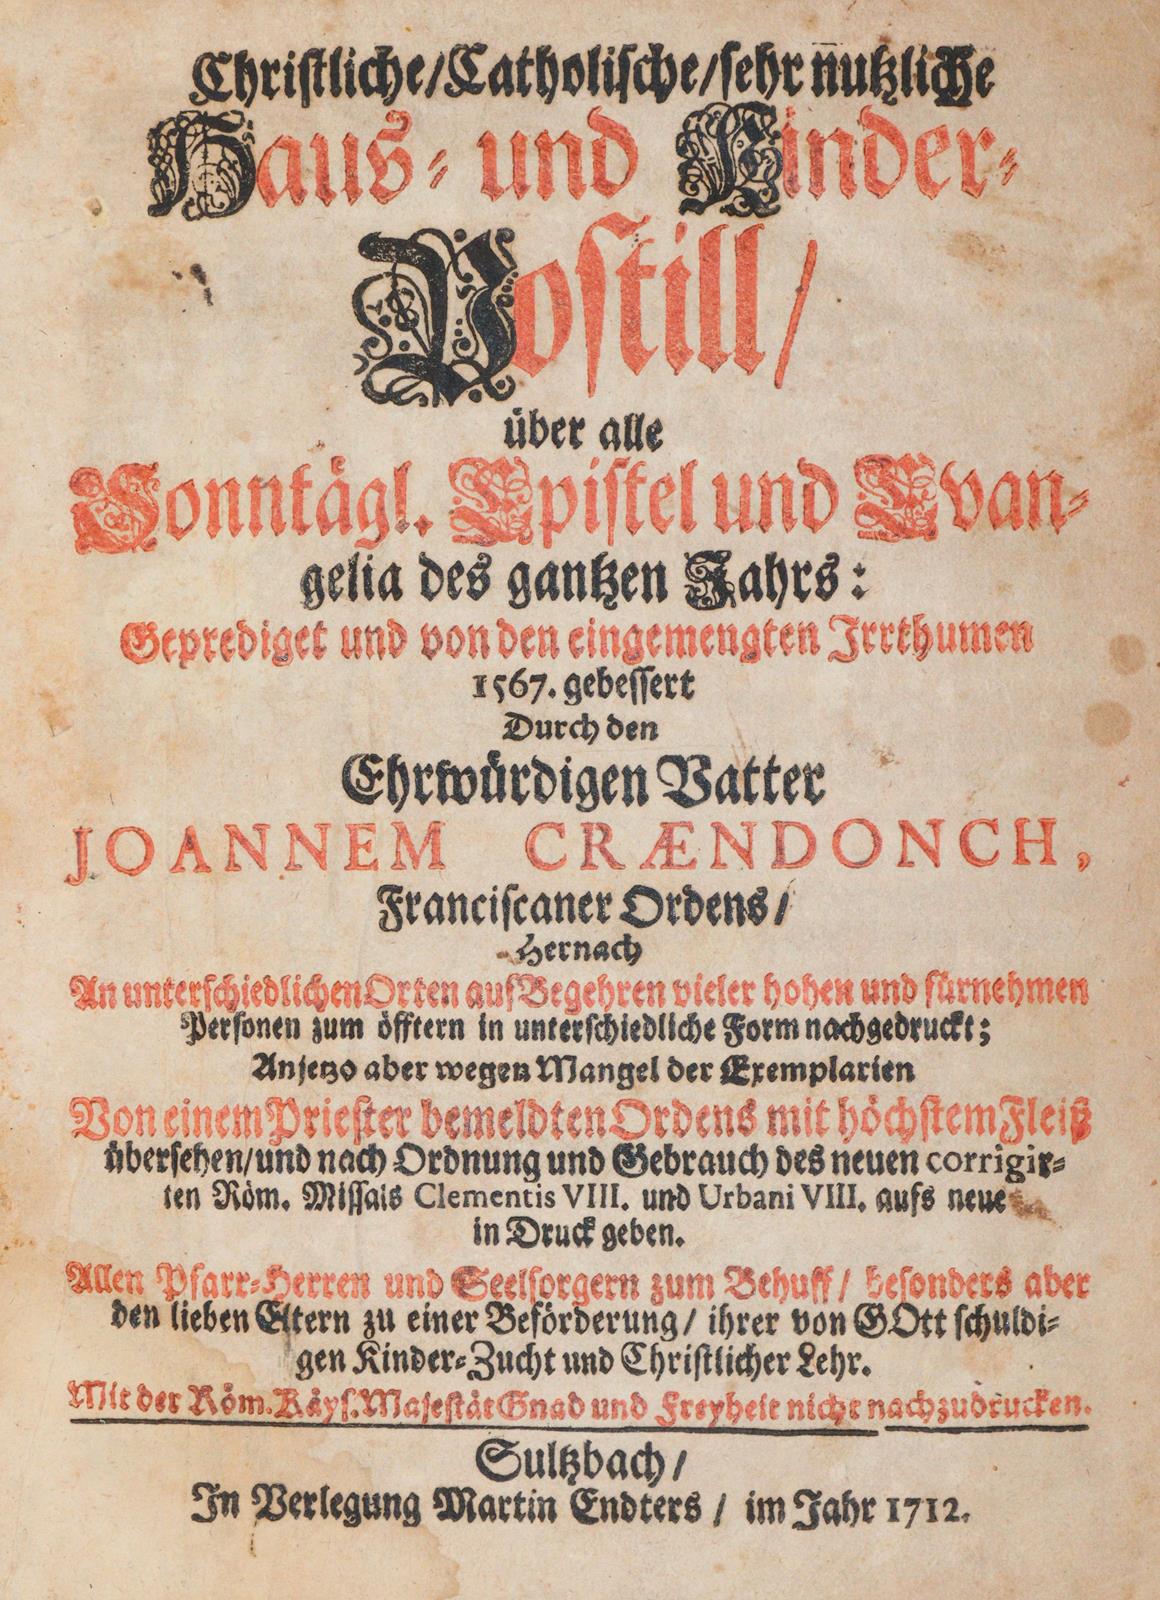 Christliche/Catholische/sehr nutzliche
Haus- und Kinder-
Postill/
über alle
Sonntägl. Epistel und Evan-
gelia des gantzen Jahrs:
Geprediget und von den eingemengten Irrthumen
1567. gebessert
Durch den
Ehrwürdigen Vatter
JOANNEM CRÆNDONCH,
Franciscaner Ordens/
Hernach
An unterschiedlichen Orten auf Begehren vieler hohen und fürnehmen
Personen zum öfftern in unterschiedliche Form nachgedruckt;
Anjetzo aber wegen Mangel der Exemplarien
Von einem Priester bemeldten Ordens mit höchstem Fleiß
übersehen/und nach Ordnung und Gebrauch des neuen corrigir-
ten Röm. Missals Clementis VIII. und Urbani VIII. aufs neue
in Druck geben.
Allen Pfarr-Herren und Seelsorgern zum Behuff/ besonders aber
den lieben Eltern zu einer Beförderung/ ihrer von GOtt schuldi-
gen Kinder-Zucht und Christlicher Lehr.
Mit der Röm. Käys. Majestät Gnad und Freyheit nicht nachzudrucken.
Sultzbach/
In Verlegung Martin Endters/ im Jahr 1712.